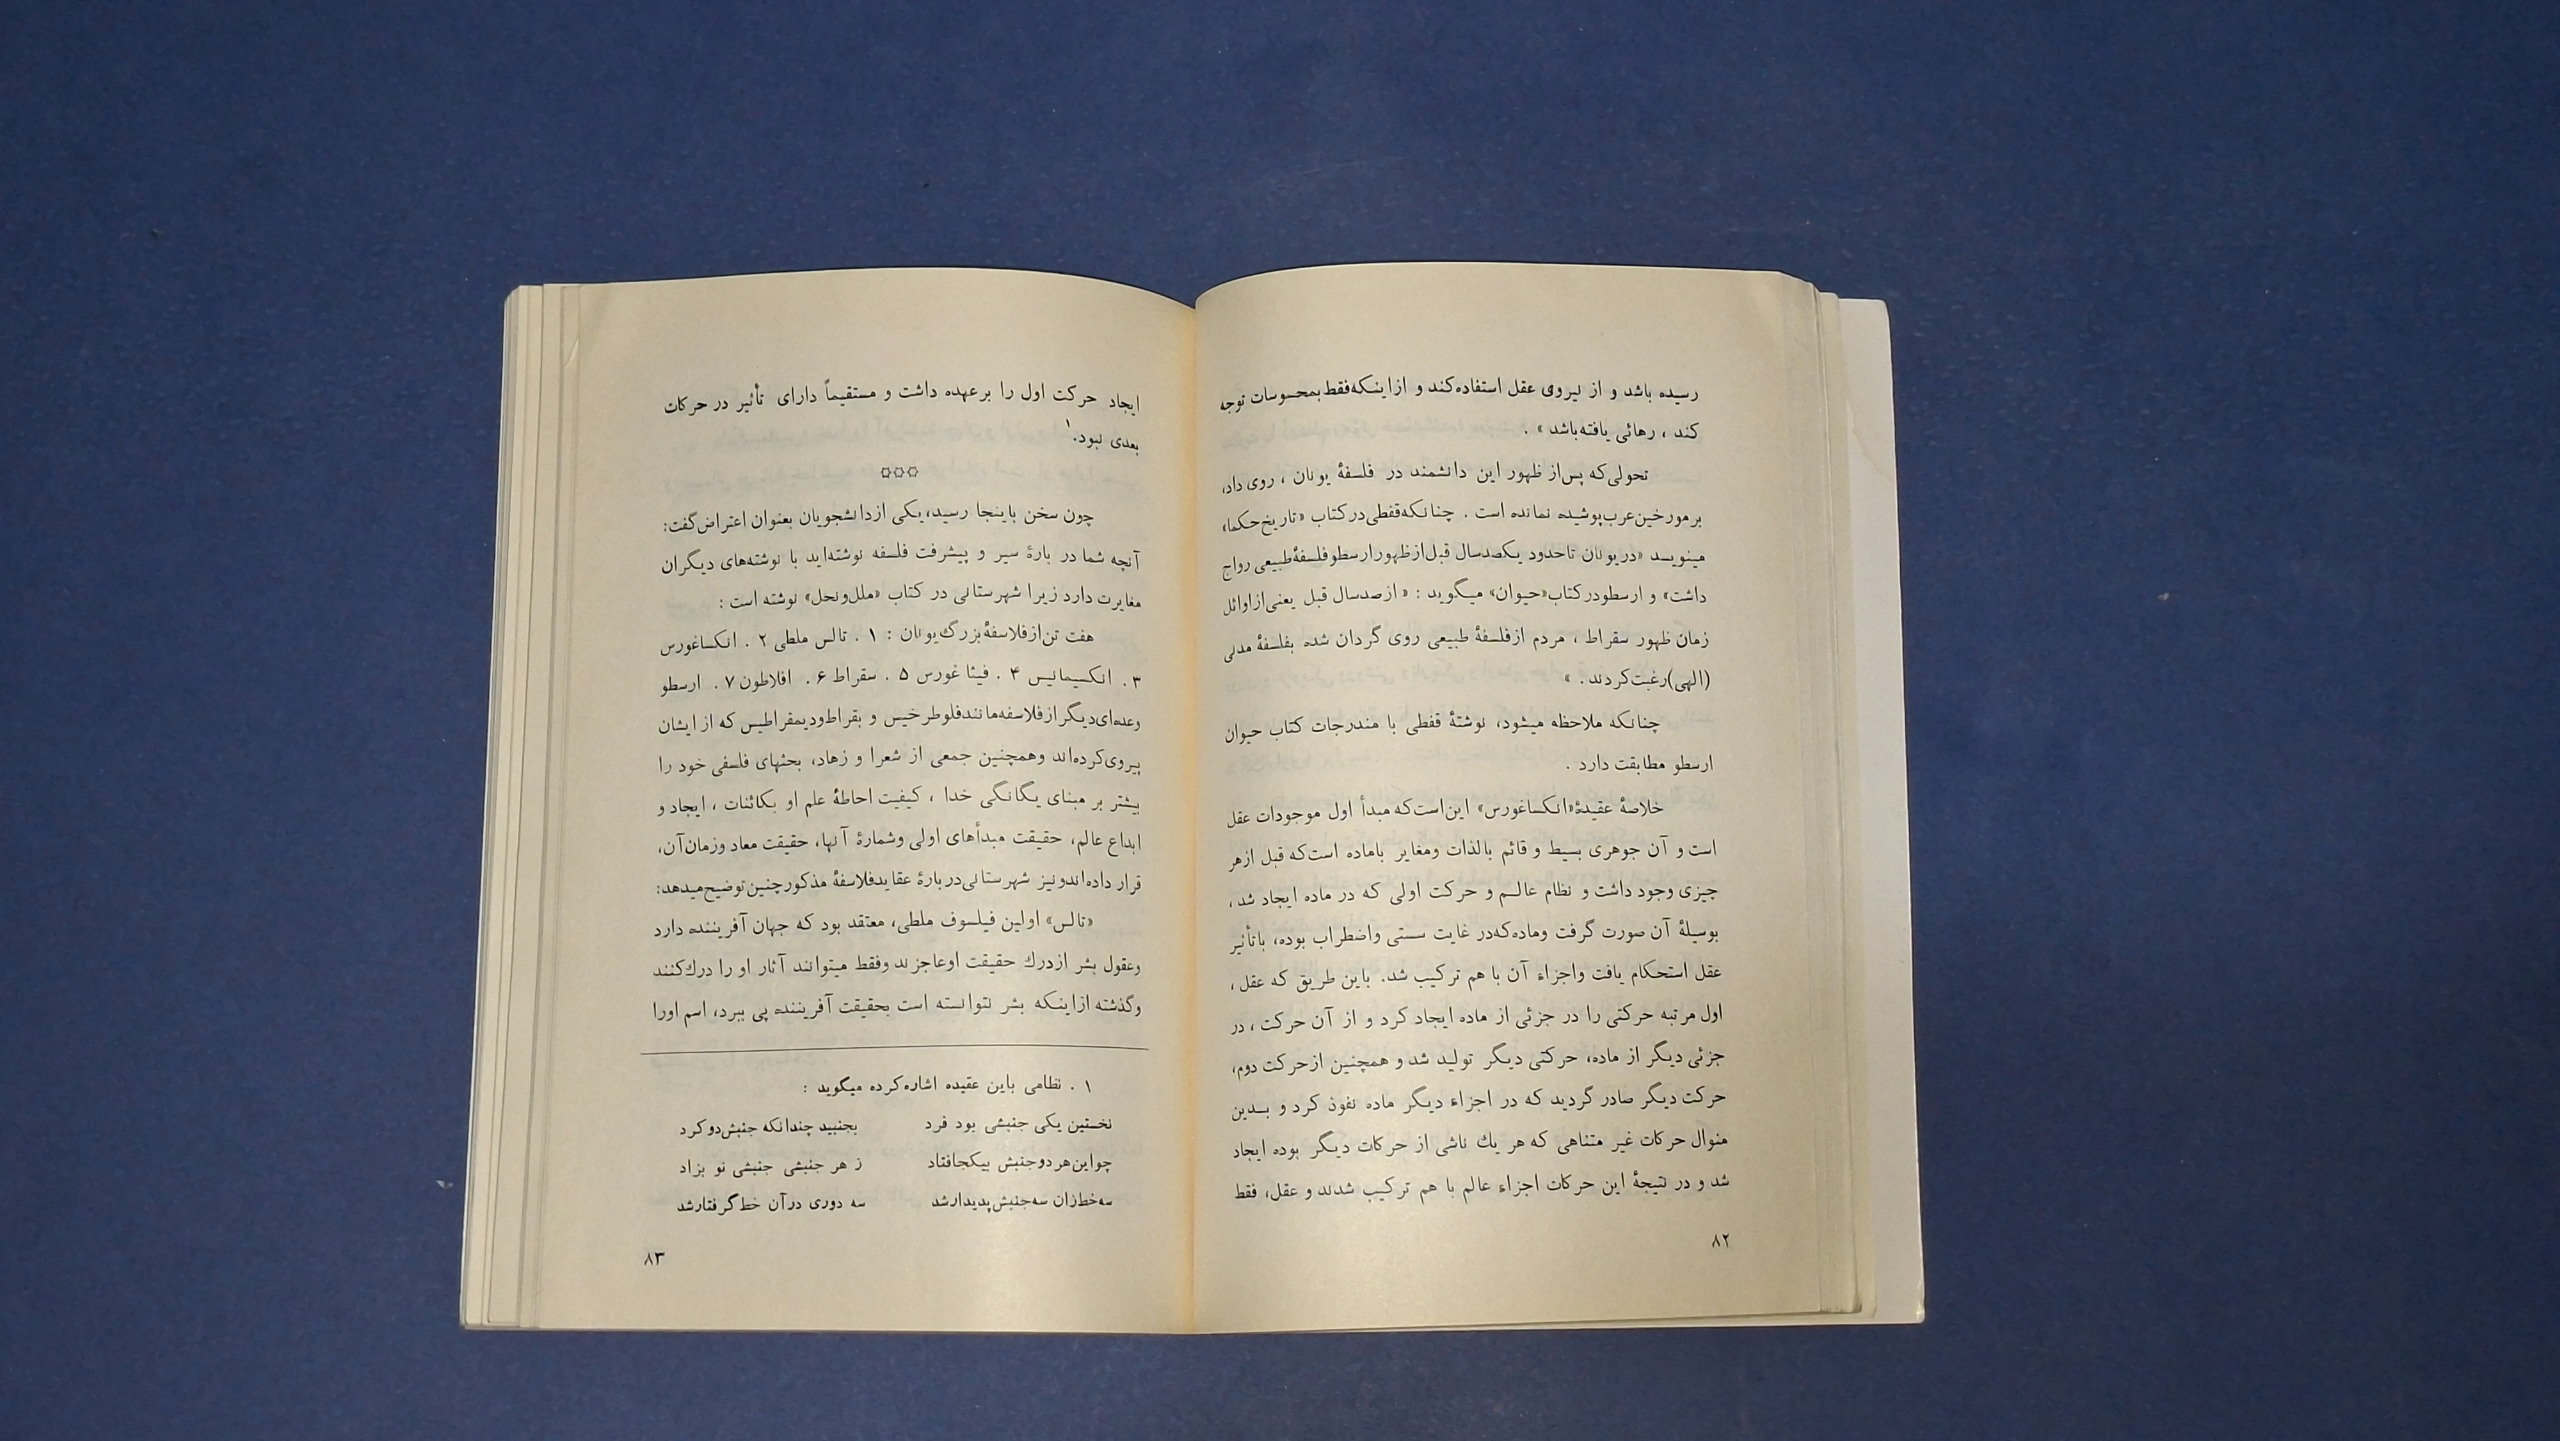 رسیده باشد و از نیروی عقل استفاده‌کند و ازاینکه‌فقط بمحسوسات توجه
کند ، رهائی یافته‌باشد » .
تحولی‌که پس‌از ظهور این دانشمند در فلسفهٔ یونان ، روی داد،
برمورخین‌عرب‌پوشیده نمانده است . چنانکه‌قفطی‌درکتاب «تاریخ‌حکما»
مینویسد «دریونان تاحدود یکصدسال قبل‌ازظهورارسطوفلسفهٔ‌طبیعی رواج
داشت» و ارسطودرکتاب«حیوان» میگوید : « ازصدسال قبل یعنی‌ازاوائل
زمان ظهور سقراط ، مردم ازفلسفهٔ طبیعی روی گردان شده بفلسفهٔ مدنی
(الهی)رغبت‌کردند . »
چنانکه ملاحظه میشود، نوشتهٔ قفطی با مندرجات کتاب حیوان
ارسطو مطابقت دارد .
خلاصهٔ عقیدهٔ«انکساغورس» این‌است‌که مبدأ اول موجودات عقل
است و آن جوهری بسیط و قائم بالذات ومغایر باماده است‌که قبل ازهر
چیزی وجود داشت و نظام عالم و حرکت اولی که در ماده ایجاد شد،
بوسیلهٔ آن صورت گرفت وماده‌که‌در غایت سستی واضطراب بوده، باتأثیر
عقل استحکام یافت واجزاء آن با هم ترکیب شد. باین طریق که عقل ،
اول مرتبه حرکتی را در جزئی از ماده ایجاد کرد و از آن حرکت ، در
جزئی دیگر از ماده، حرکتی دیگر تولید شد و همچنین ازحرکت دوم،
حرکت دیگر صادر گردید که در اجزاء دیگر ماده نفوذ کرد و بدین
منوال حرکات غیر متناهی که هر یك ناشی از حرکات دیگر بوده ایجاد
شد و در نتیجهٔ این حرکات اجزاء عالم با هم ترکیب شدند و عقل، فقط
۸۲
ایجاد حرکت اول را برعهده داشت و مستقیماً دارای تأثیر در حرکات
بعدی نبود.۱
✡✡✡
چون سخن باینجا رسید،یکی ازدانشجویان بعنوان اعتراض‌گفت:
آنچه شما در بارهٔ سیر و پیشرفت فلسفه نوشته‌اید با نوشته‌های دیگران
مغایرت دارد زیرا شهرستانی در کتاب «ملل‌ونحل» نوشته است :
هفت تن‌ازفلاسفهٔ‌بزرگ‌یونان : ۱ . تالس ملطی ۲ . انکساغورس
۳ . انکسیمانیس ۴ . فیثاغورس ۵ . سقراط ۶ . افلاطون ۷ . ارسطو
وعده‌ای‌دیگرازفلاسفه‌مانندفلوطرخیس و بقراط‌ودیمقراطیس که ازایشان
پیروی‌کرده‌اند وهمچنین جمعی از شعرا و زهاد، بحثهای فلسفی خود را
بیشتر بر مبنای یگانگی خدا ، کیفیت احاطهٔ علم او بکائنات ، ایجاد و
ابداع عالم، حقیقت مبدأهای اولی وشمارهٔ آنها، حقیقت معاد وزمان‌آن،
قرار داده‌اندونیز شهرستانی‌دربارهٔ عقایدفلاسفهٔ مذکورچنین‌توضیح‌میدهد:
«تالس» اولین فیلسوف ملطی، معتقد بود که جهان آفریننده دارد
وعقول بشر ازدرك حقیقت اوعاجزند وفقط میتوانند آثار او را درك‌کنند
وگذشته ازاینکه بشر نتوانسته است بحقیقت آفریننده پی ببرد، اسم اورا
۱ . نظامی باین عقیده اشاره‌کرده میگوید :
نخستین یکی جنبشی بود فرد بجنبید چندانکه جنبش‌دوکرد
چواین‌هردوجنبش بیکجافتاد ز هر جنبشی جنبشی نو بزاد
سه‌خط‌زان سه‌جنبش‌پدیدارشد سه دوری درآن خط‌گرفتارشد
۸۳